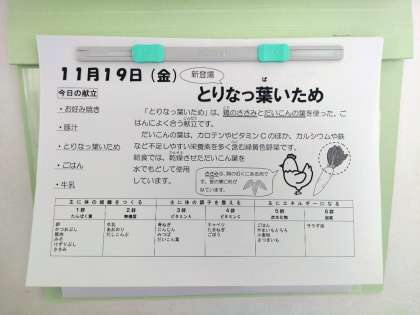 11月19日（金）
新登場
とりなっ葉いため
ば
今日の献立
・お好み焼き
・豚汁
・とりなっ葉いため
・ごはん
・牛乳
「とりなっ葉いため」は、鶏のささみとだいこんの葉を使った、ご
はんによく合う献立です。
だいこんの葉は、カロテンやビタミンCのほか、カルシウムや鉄
など不足しやすい栄養素を多く含む緑黄色野菜です。
給食では、乾燥させただいこん葉を
水でもどして使用
しています。
主に体の組織をつくる
主に体の調子を整える
主にエネルギーになる
1群
2群
3群
4群
5群
6群
たんぱく質
無機質
ビタミンA
ビタミンC
炭水化物
脂質
卵
かつおぶし
豚肉
みそ
けずりぶし
ささみ
牛乳
あおのり
だしこんぶ
青ねぎ
にんじん
みつば
だいこん葉
キャベツ
たまねぎ
ごぼう
ごはん
やまいもとろろ
小麦粉
さつまいも
サラダ油